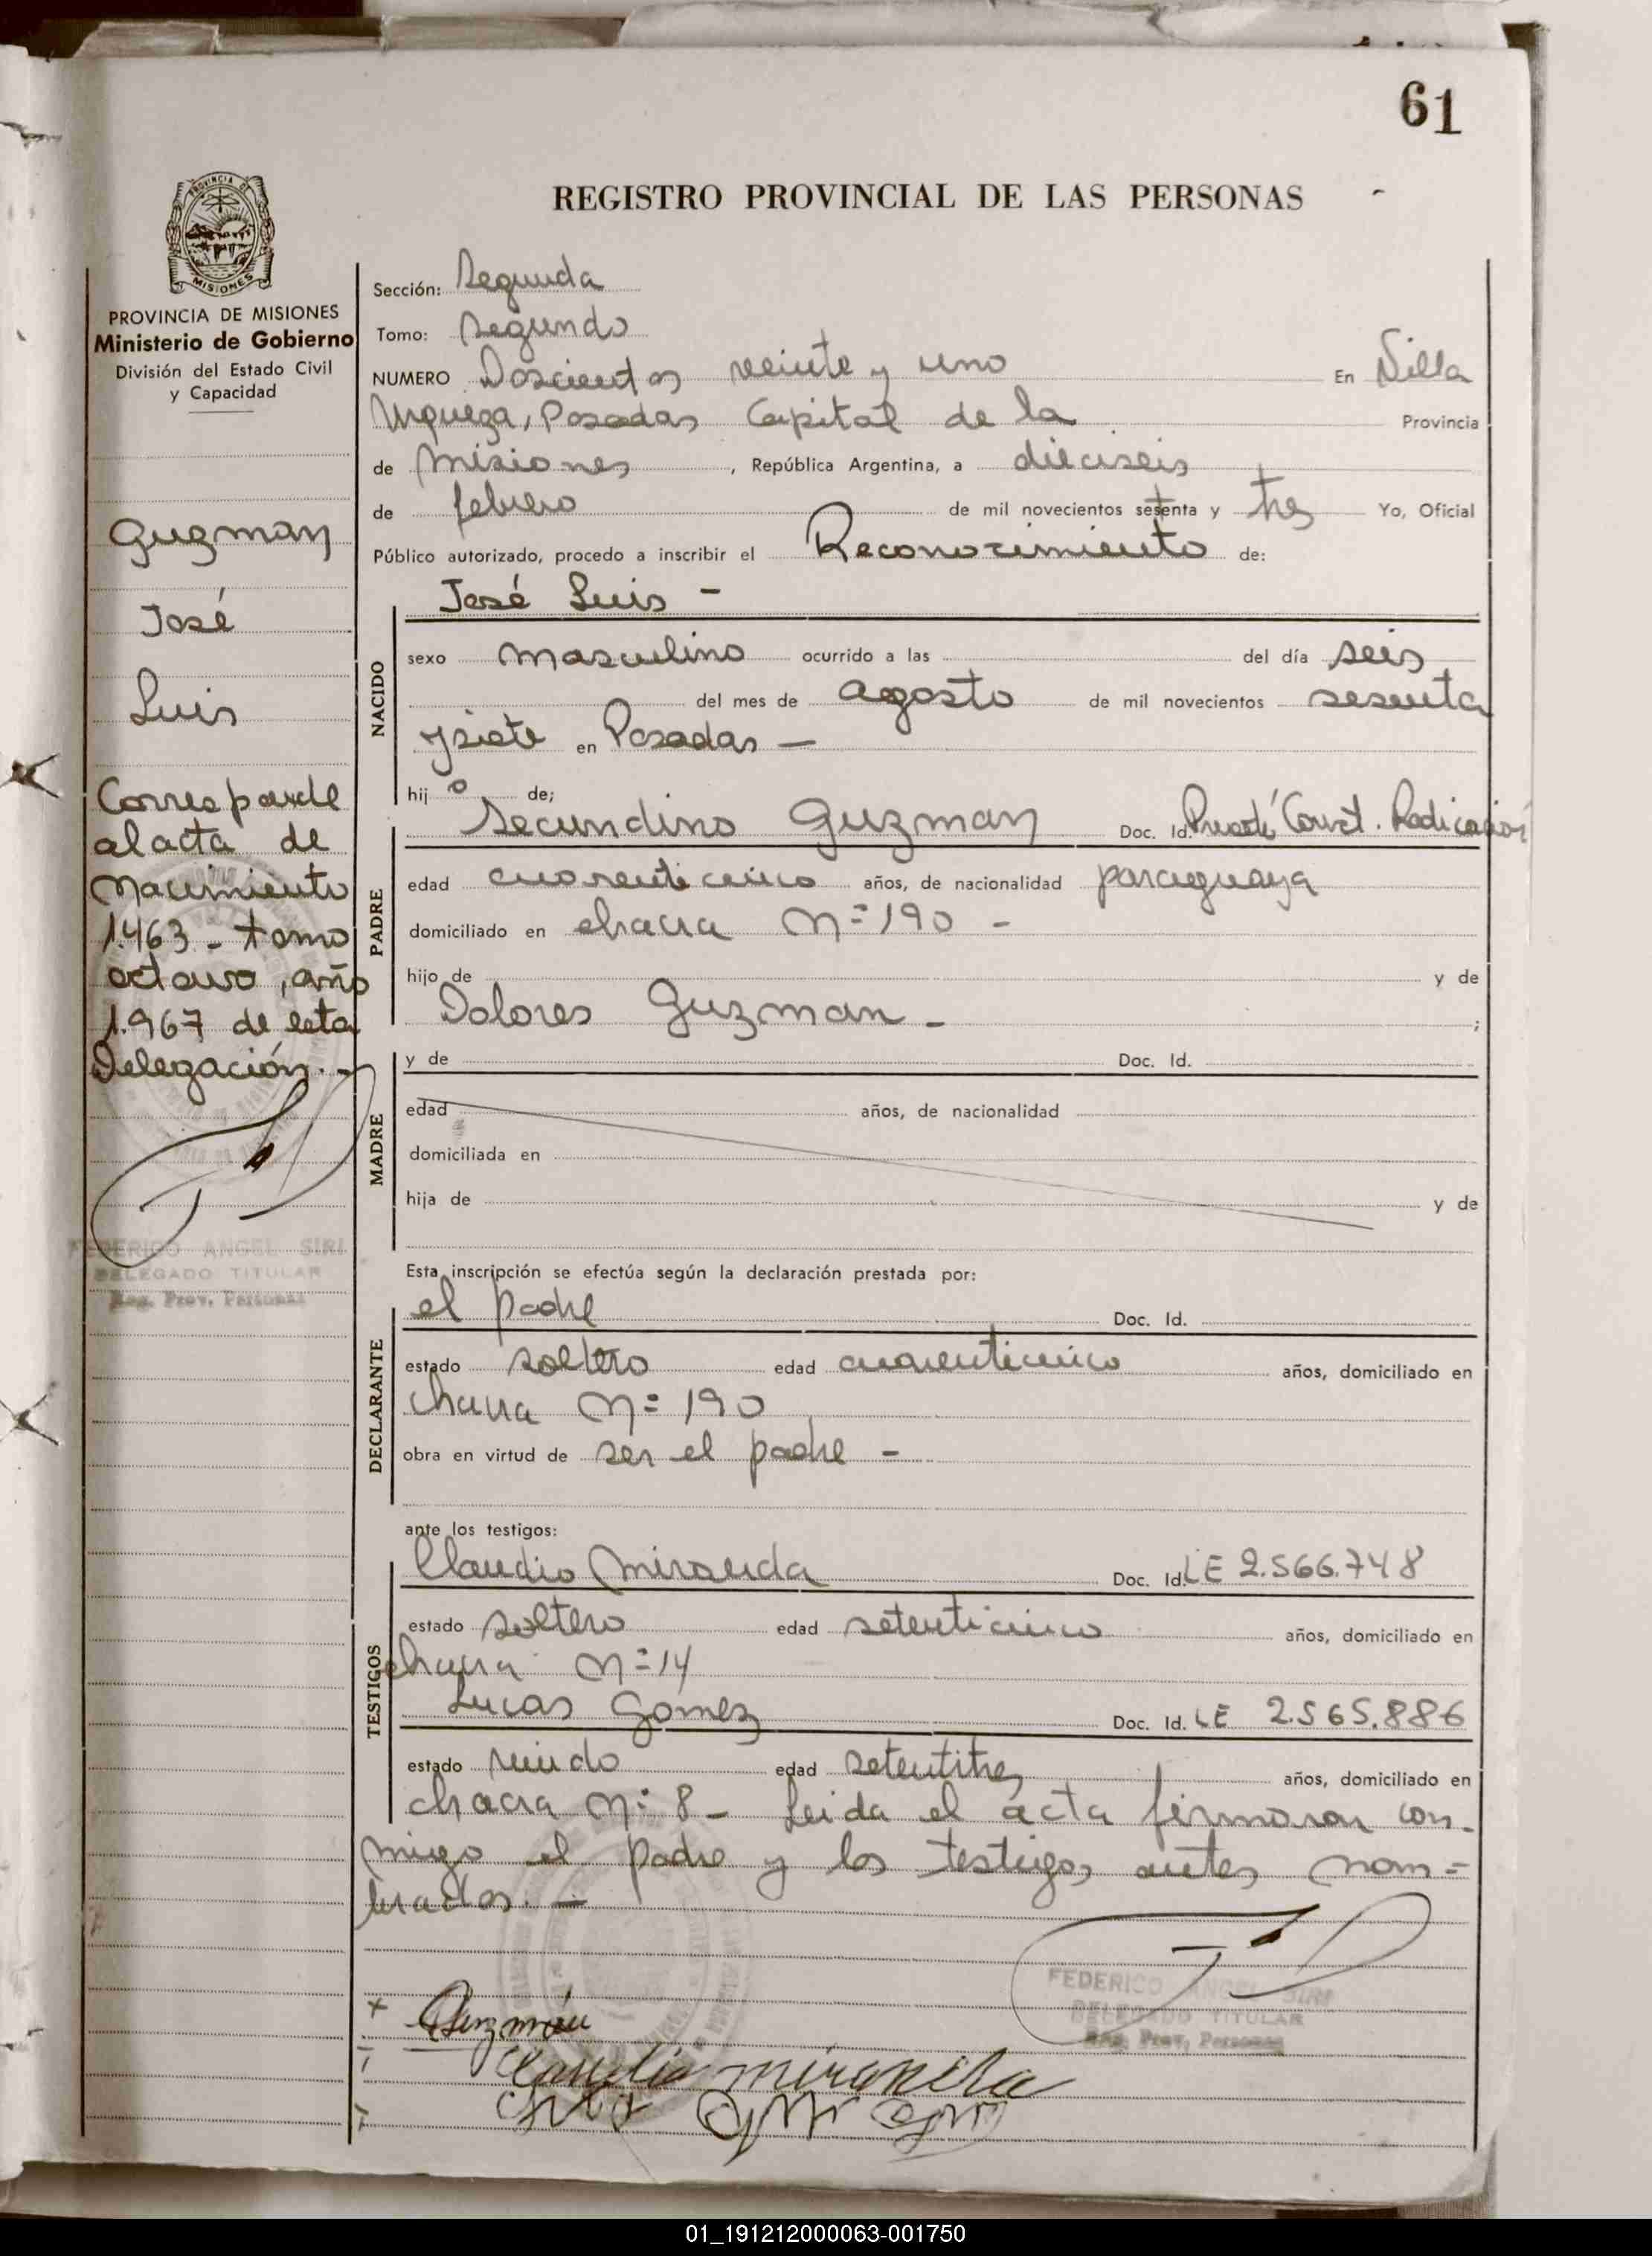 61
REGISTRO PROVINCIAL DE LAS PERSONAS
PROVINCIA DE MISIONES
PROVINCIA DE MISIONES
Ministerio de Gobierno
División del Estado Civil
y Capacidad
Guzman
José
Luis
Corresponde
al acta de
Nacimiento
1.463 - tomo
octavo, año
1.967 de esta
Delegación. -
FEDERICO ANGEL SIRI
DELEGADO TITULAR
Reg. Prov. Personas
Sección: Segunda
Tomo: Segundo
NUMERO Doscientos veinte y uno En Villa
Urquiza, Posadas Capital de la Provincia
de Misiones, República Argentina, a dieciseis
de febrero de mil novecientos setenta y tres Yo, Oficial
Público autorizado, procedo a inscribir el Reconocimiento de:
José Luis -
NACIDO
sexo masculino ocurrido a las del día seis
del mes de agosto de mil novecientos sesenta
y siete en Posadas -
hijo de;
PADRE
Secundino Guzman Doc. Id. Const. Radicación
edad cuarenticinco años, de nacionalidad paraguaya
domiciliado en chacra Nº 190 -
hijo de y de
Dolores Guzman - ;
MADRE
y de Doc. Id.
edad años, de nacionalidad
domiciliada en
hija de y de
Esta inscripción se efectúa según la declaración prestada por:
DECLARANTE
el padre Doc. Id.
estado soltero edad cuarenticinco años, domiciliado en
chacra Nº 190
obra en virtud de ser el padre -
ante los testigos:
TESTIGOS
Claudio Miranda Doc. Id. LE 2.566.748
estado soltero edad setenticinco años, domiciliado en
chacra Nº 14
Lucas Gomez Doc. Id. LE 2.565.886
estado viudo edad setentitres años, domiciliado en
chacra Nº 8 - Leida el acta firmaron con-
migo el padre y los testigos antes nom=
brados. -
FEDERICO ANGEL SIRI
DELEGADO TITULAR
Reg. Prov. Personas
x Guzmán
Claudio miranda
01_191212000063-001750